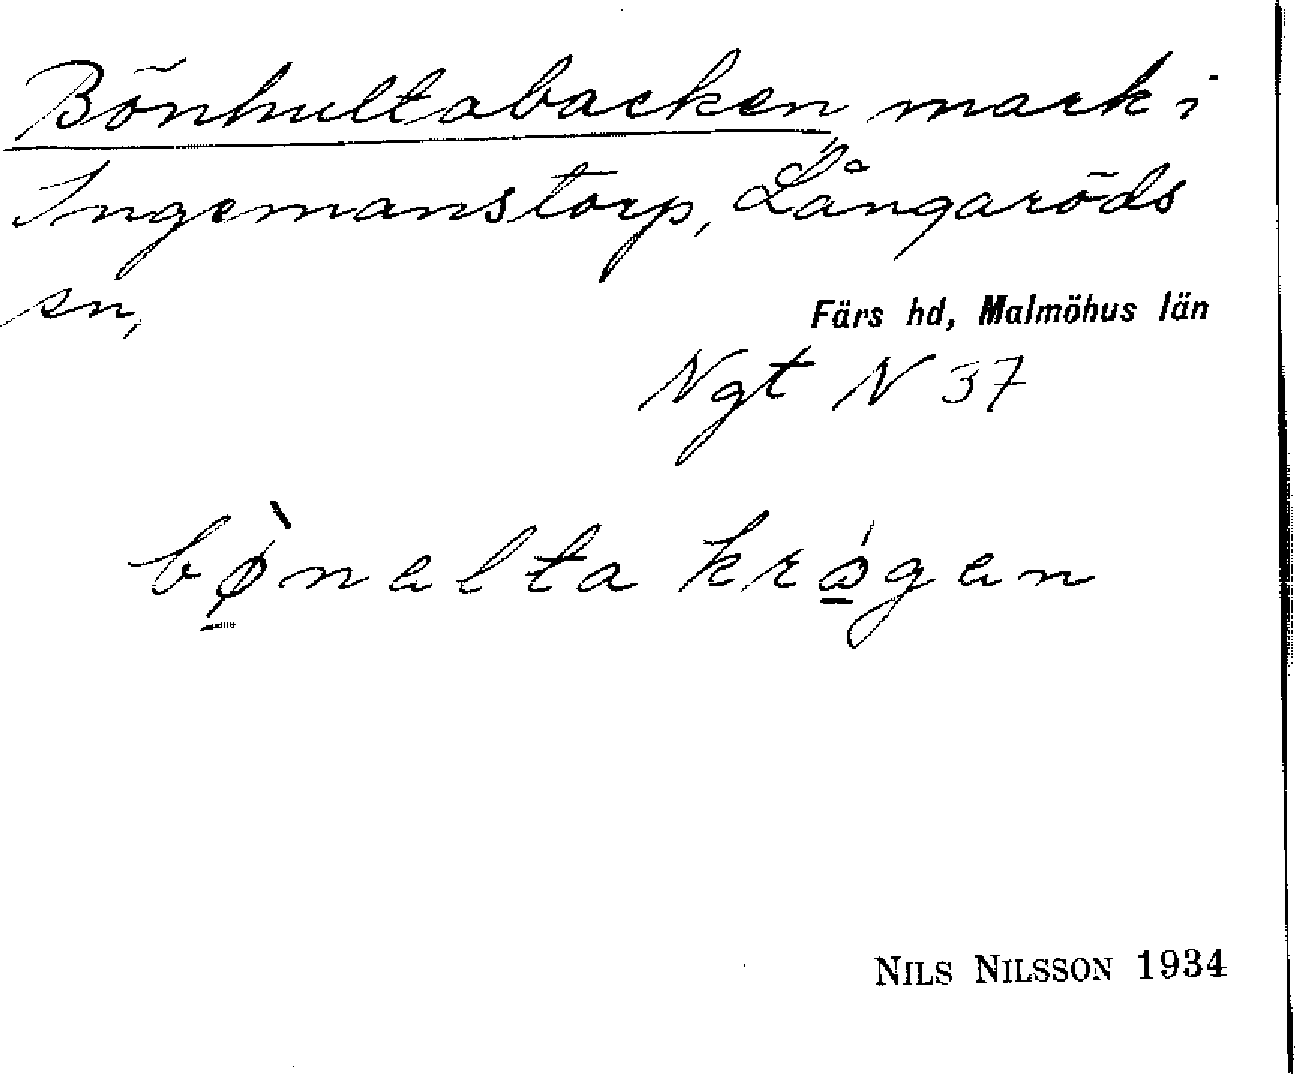 Bönhultabacken mark i
Ingemanstorp, Långaröds
sn,
Färs hd, Malmöhus län
Ngt N 37
bø̱̀nelta krá̱gen
NILS NILSSON 1934